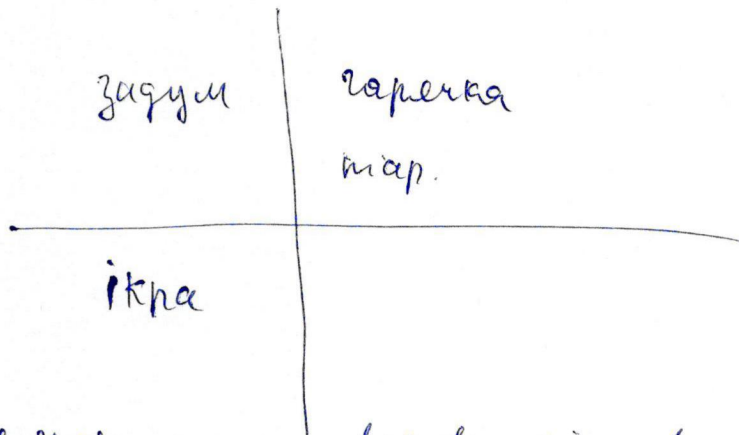 задум гарячка
тар.
ікра